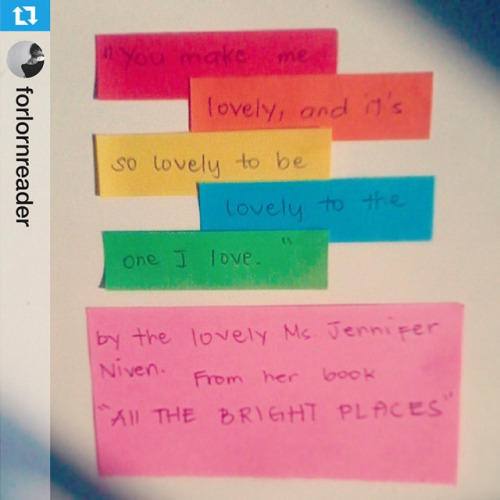 forlornreader
"You make me
lovely, and it's
so lovely to be
lovely to the
one I love."
by the lovely Ms. Jennifer
Niven. From her book
"All THE BRIGHT PLACES"